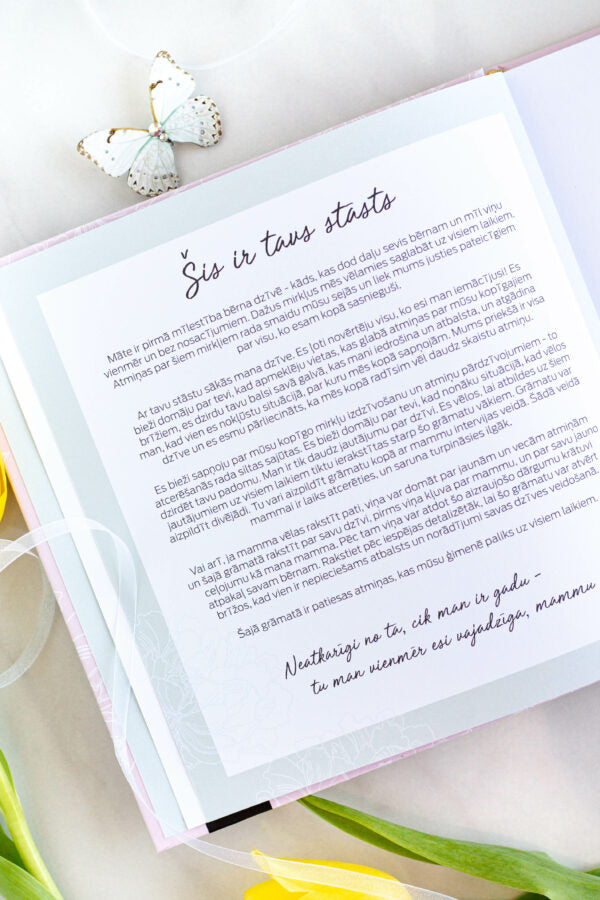 Šis ir tavs stasts
Māte ir pirmā mīlestība bērna dzīvē - kāds, kas dod daļu sevis bērnam un mīl viņu
vienmēr un bez nosacījumiem. Dažus mirkļus mēs vēlamies saglabāt uz visiem laikiem.
Atmiņas par šiem mirkļiem rada smaidu mūsu sejās un liek mums justies pateicīgiem
par visu, ko esam kopā sasnieguši.
Ar tavu stāstu sākās mana dzīve. Es ļoti novērtēju visu, ko esi man iemācījusi! Es
bieži domāju par tevi, kad apmeklēju vietas, kas glabā atmiņas par mūsu kopīgajem
brīžiem, es dzirdu tavu balsi savā galvā, kas mani iedrošina un atbalsta, un atgādina
man, kad vien es nokļūstu situācijā, par kuru mēs kopā sapņojām. Mums priekšā ir visa
dzīve un es esmu pārliecināts, ka mēs kopā radīsim vēl daudz skaistu atmiņu.
Es bieži sapņoju par mūsu kopīgo mirkļu izdzīvošanu un atmiņu pārdzīvojumiem - to
atcerēšanās rada siltas sajūtas. Es bieži domāju par tevi, kad nonāku situācijā, kad vēlos
dzirdēt tavu padomu. Man ir tik daudz jautājumu par dzīvi. Es vēlos, lai atbildes uz šiem
jautājumiem uz visiem laikiem tiktu ierakstītas starp šo grāmatu vākiem. Grāmatu var
aizpildīt divējādi. Tu vari aizpildīt grāmatu kopā ar mammu intervijas veidā. Šādā veidā
mammai ir laiks atcerēties, un saruna turpināsies ilgāk.
Vai arī, ja mamma vēlas rakstīt pati, viņa var domāt par jaunām un vecām atmiņām
un šajā grāmatā rakstīt par savu dzīvi, pirms viņa kļuva par mammu, un par savu jauno
ceļojumu kā mana mamma. Pēc tam viņa var atdot šo aizraujošo dārgumu krātuvi
atpakaļ savam bērnam. Rakstiet pēc iespējas detalizētāk, lai šo grāmatu var atvērt
brīžos, kad vien ir nepieciešams atbalsts un norādījumi savas dzīves veidošanā.
Šajā grāmatā ir patiesas atmiņas, kas mūsu ģimenē paliks uz visiem laikiem.
Neatkarīgi no tā, cik man ir gadu -
tu man vienmēr esi vajadzīga, mammu